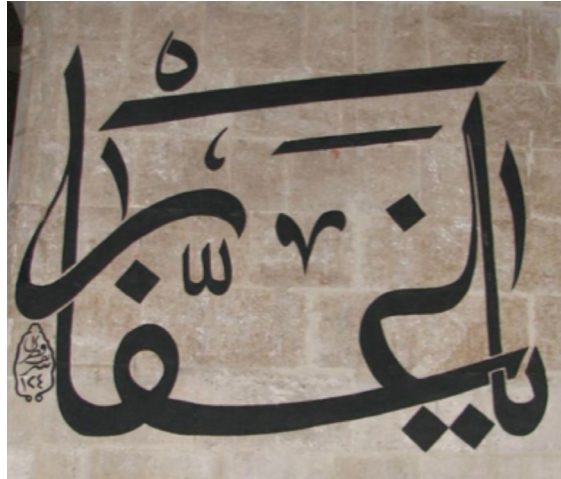 يا غفار